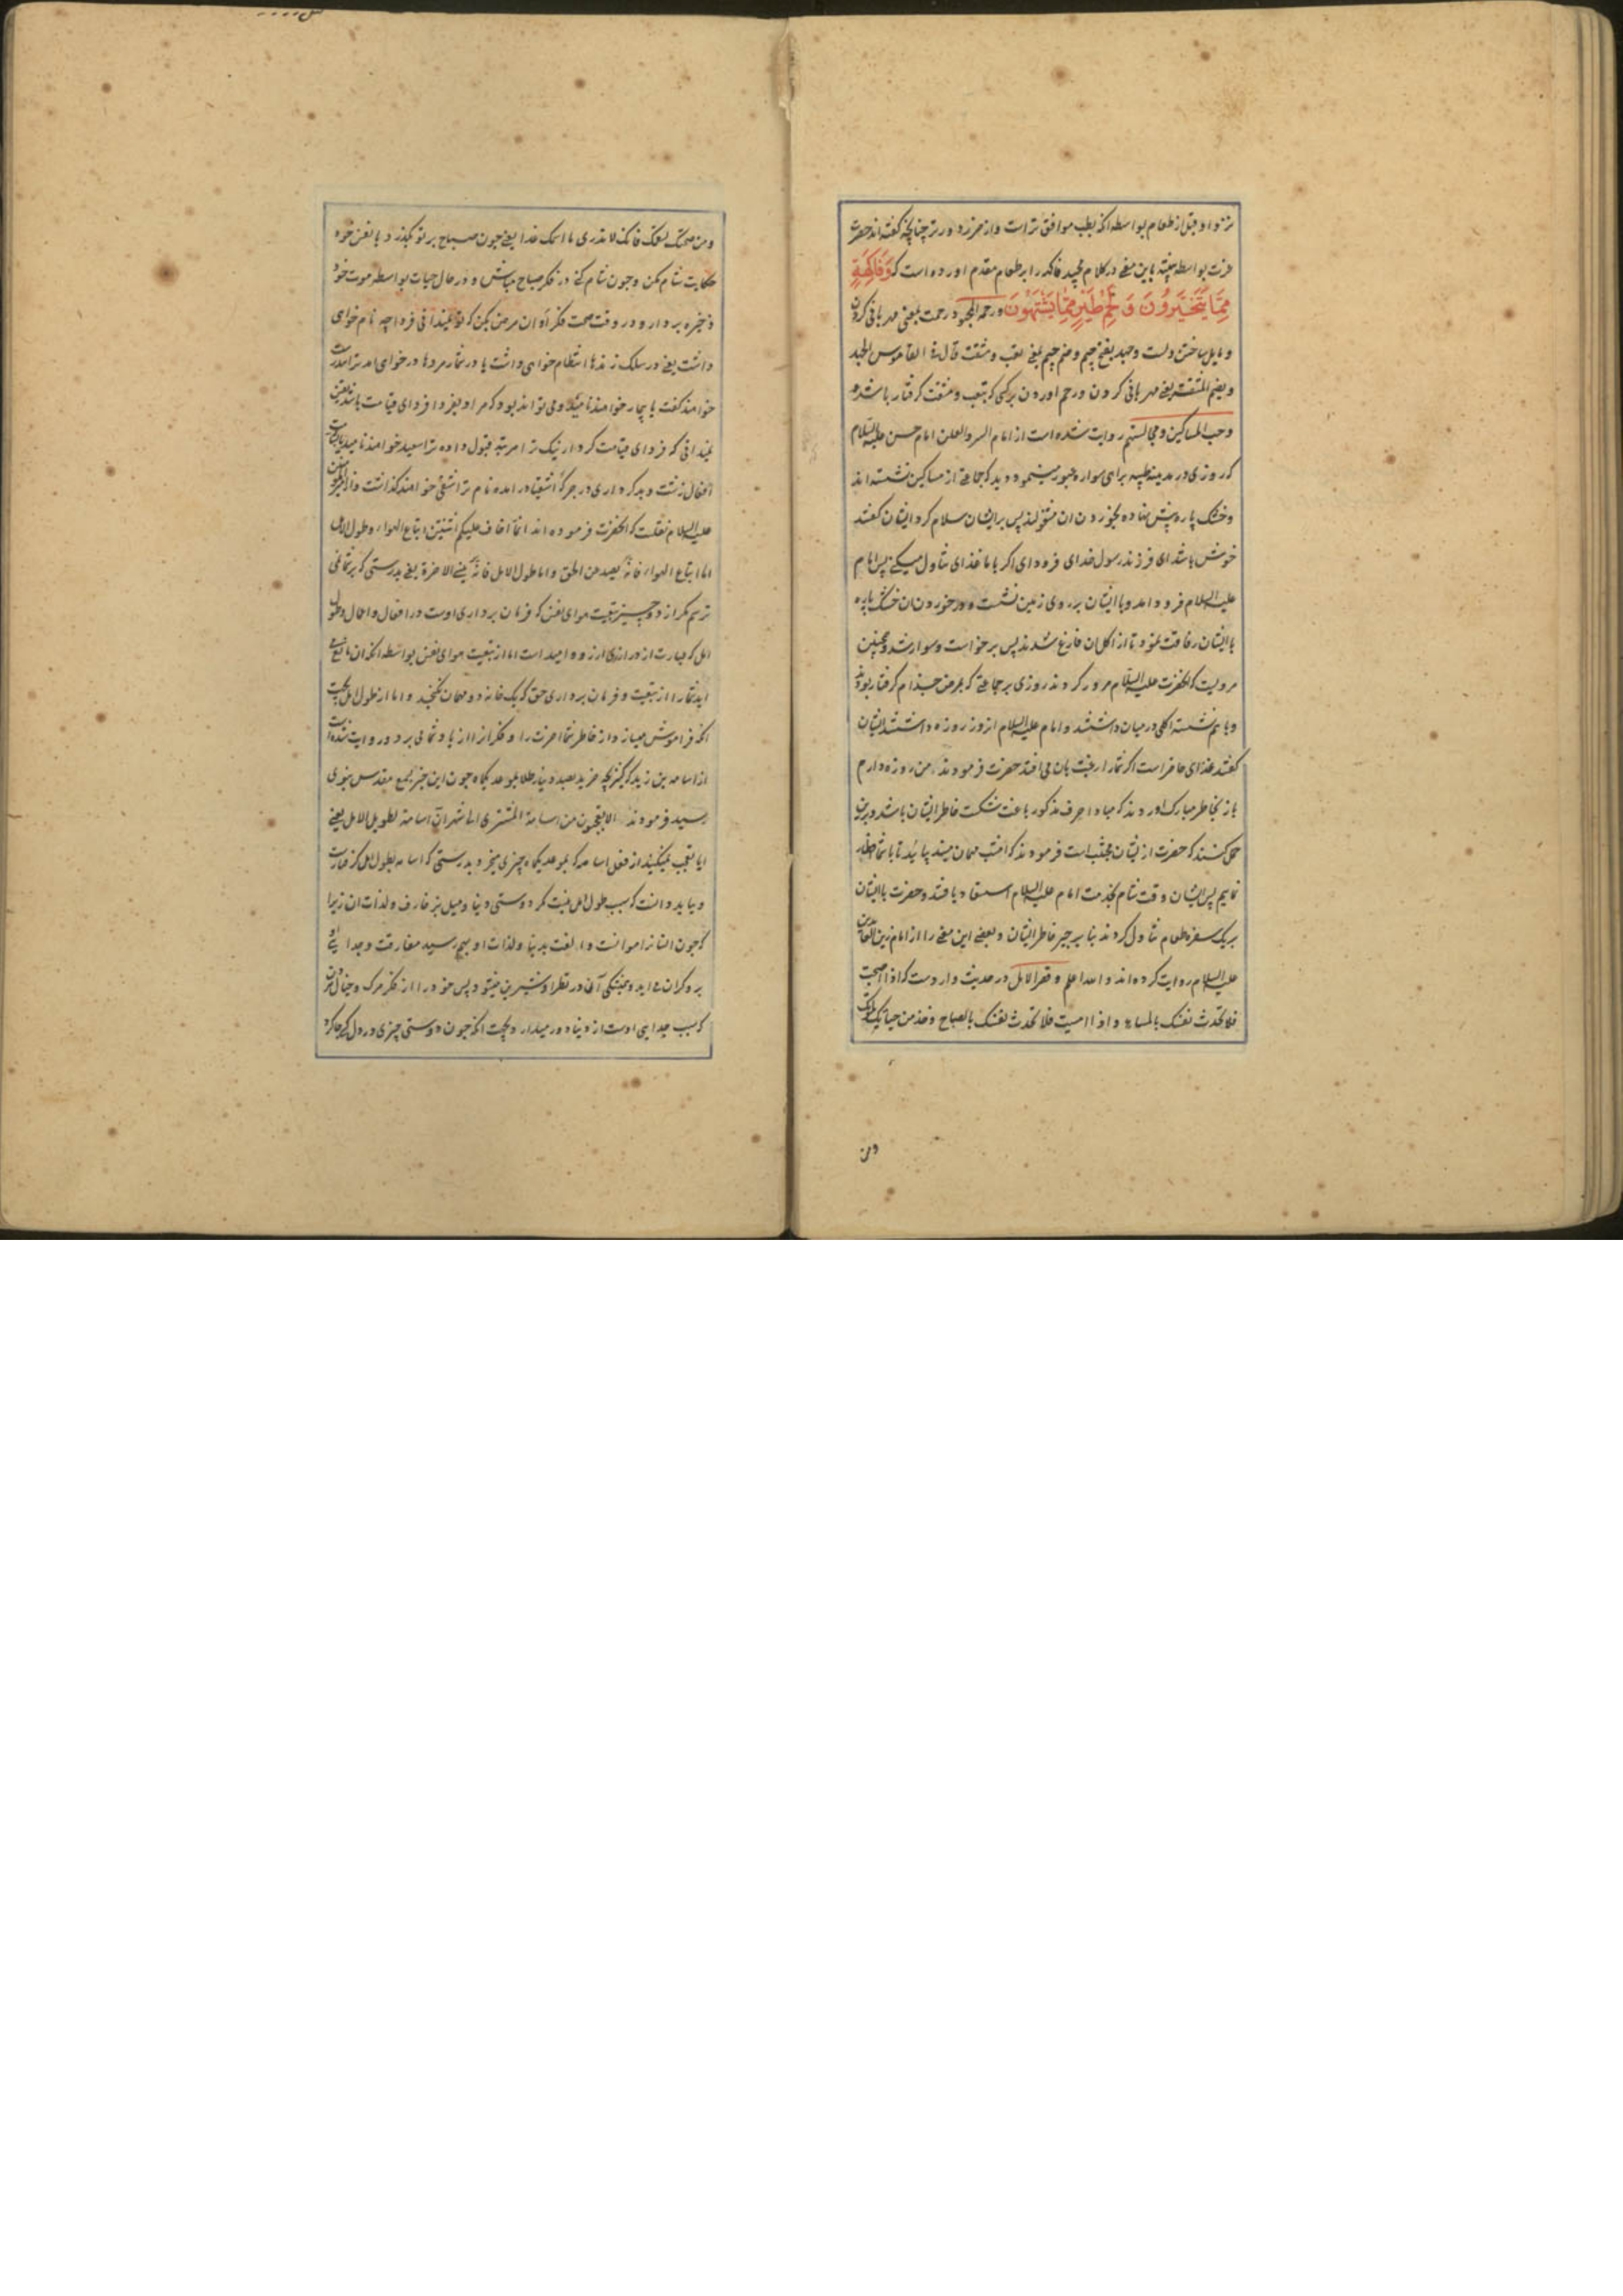 نزد او قبل از طعام بواسطه انکه بطب موافق تر است و از ضرر دورتر چنانچه کفته اند حضرت
عزت بواسطه تنبیه باین معنی در کلام مجید فاکهه را بر طعام مقدم اورده است که وَفَاكِهَةٍ
مِمَّا يَتَخَيَّرُونَ وَ لَحْمِ طَيْرٍ مِمَّا يَشْتَهُونَ ورحمة المجهود رحمت بمعنی مهربانی کردن
و مایل ساختن دلست و جهد بفتح جیم و ضم جیم بمعنی تعب و مشقت قال فی القاموس الجهد
ویضم المشقة یعنی مهربانی کردن ورحم اوردن بر کسی که بتعب و مشقت کرفتار باشد
وحب المساکین ومجالستهم روایت شده است از امام السر والعلن امام حسن علیه السلام
که روزی در مدینه طیبه براهی سواره عبور مینمود دید که جماعتی از مساکین نشسته اند
وخشک پاره پیش نهاده بخوردن ان مشغولند پس برایشان سلام کرد ایشان کفتند
خوش باشد ای فرزند رسول خدای فرود ای اکر با ما غذای تناول میکنی پس امام
علیه السلام فرود امد وبا ایشان بر روی زمین نشست ودر خوردن ان خشک پاره
با ایشان رفاقت نمود تا از اکل ان فارغ شدند پس برخواست وسوار شد وهمچنین
مرویست که انحضرت علیه السلام مرور کردند روزی بر جماعتی که بمرض جذام کرفتار بودند
وباهم نشسته اکلی درمیان داشتند وامام علیه السلام انروز روزه داشتند ایشان
کفتند غذای حاضر است اکر شما را رغبت بان می افتد حضرت فرمودند من روزه دارم
باز بخاطر مبارک اوردند که مبادا حرف مذکور باعث شکست خاطر ایشان باشد وبرین
حمل کنند که حضرت از ایشان مجتنب است فرمودند که امشب مهمان میند بیائید تا با شما افطار
نمایم پس ایشان وقت شام بخدمت امام علیه السلام استسعاد یافتند وحضرت با ایشان
بریک سفره طعام تناول کردند بنا بر جبر خاطر ایشان وبعضی این معنی را از امام زین العابدین
علیه السلام روایت کرده اند والله اعلم وقصر الامل در حدیث واردست که اذا اصبحت
فلا تحدث نفسک بالمساء واذا امسیت فلا تحدث نفسک بالصباح وخذ من حیاتک لموتک
ومن
ومن صحتک لسقمک فانک لا تدری ما اسمک غدا یعنی چون صباح بر تو بکذرد با نفس خود
حکایت شام مکن وچون شام کنی در فکر صباح مباش ودر حال حیات بواسطه موت خود
ذخیره بردار ودر وقت صحت فکر اوان مرض بکن که تو نمیدانی فردا چه نام خواهی
داشت یعنی در سلک زندها انتظام خواهی داشت یا در شمار مردها درخواهی امد تراتندرست
خواهند کفت یا بیمار خواهند نامید ومی تواند بود که مراد بفردا فردای قیامت باشد یعنی
نمیدانی که فردای قیامت کردار نیک ترا مرتبه قبول داده ترا سعید خواهند نامید
افعال زشت وبد کرداری در جرکه اشقیا در امده نام ترا شقی خواهند کذاشت واز امیرالمؤمنین
علیه السلام نقلست که انحضرت فرموده اند انما اخاف علیکم اثنتین اتباع الهواء وطول الامل
اما اتباع الهواء فانه یصد عن الحق واما طول الامل فانه ینسی الاخرة یعنی بدرستی که بر شما نمی
ترسم مکر از دو چیز تبعیت هوای نفس که فرمان برداری اوست در افعال واعمال وطول
امل که عبارت از درازی ارزو وامید است اما از تبعیت هوای نفس بواسطه انکه ان مانع می
اید شما را از تبعیت وفرمان برداری حق که یک خانه دو مهمان نکنجد واما از طول امل بجهت
انکه فراموش میسازد از خاطر شما اخرت را وفکر انرا از یاد شما می برد وروایت شده است
از اسامه بن زید که کنیزکی خرید بصد دینار طلا بموعد یکماه چون این خبر بسمع مقدس نبوی
رسید فرمودند الا تعجبون من اسامة المشتری الی شهر ان اسامة لطویل الامل یعنی
ایا تعجب نمیکنید از فعل اسامه که بموعد یکماه چیزی میخرد بدرستی که اسامه بطول امل کرفتارست
وبباید دانست که سبب طول امل نیست مکر دوستی دنیا ومیل بزخارف ولذات ان زیرا
که چون انسانرا موانست والفت بدنیا ولذات او بهم رسید مفارقت وجدایی او
برو کران می اید وهمیشکی ان در نظر او شیرین میشود پس خود را از فکر مرک وخیال مردن
که سبب جدایی اوست از دنیا دور میدارد بجهت انکه چون دوستی چیزی در دل کسی جا کرد